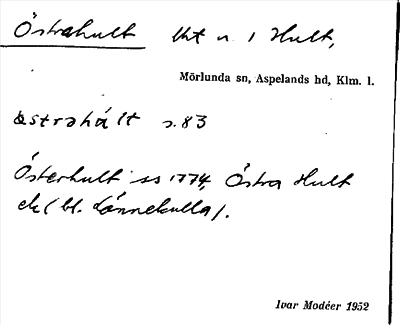 Östrahult  lht n. i Hult,
Mörlunda sn, Aspelands hd, Klm. l.
östrahált  s. 83
Österhult ss 1774, Östra Hult
ek (bl. Lönnekulla).
Ivar Modéer 1952